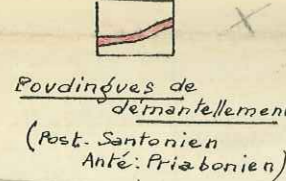 Poudingues de
démantellement
(Post. Santonien
Anté: Priabonien)